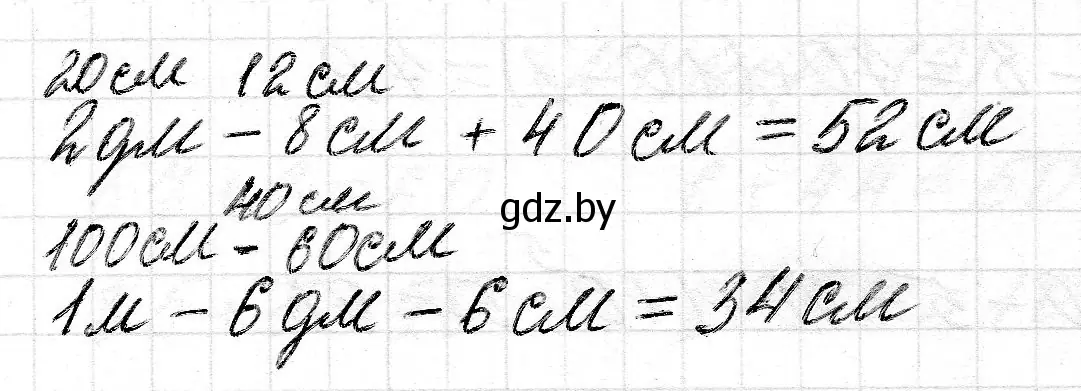 20см 12см
2дм - 8см + 40см = 52см
40см
100см - 60см
1м - 6дм - 6см = 34см
gdz.by